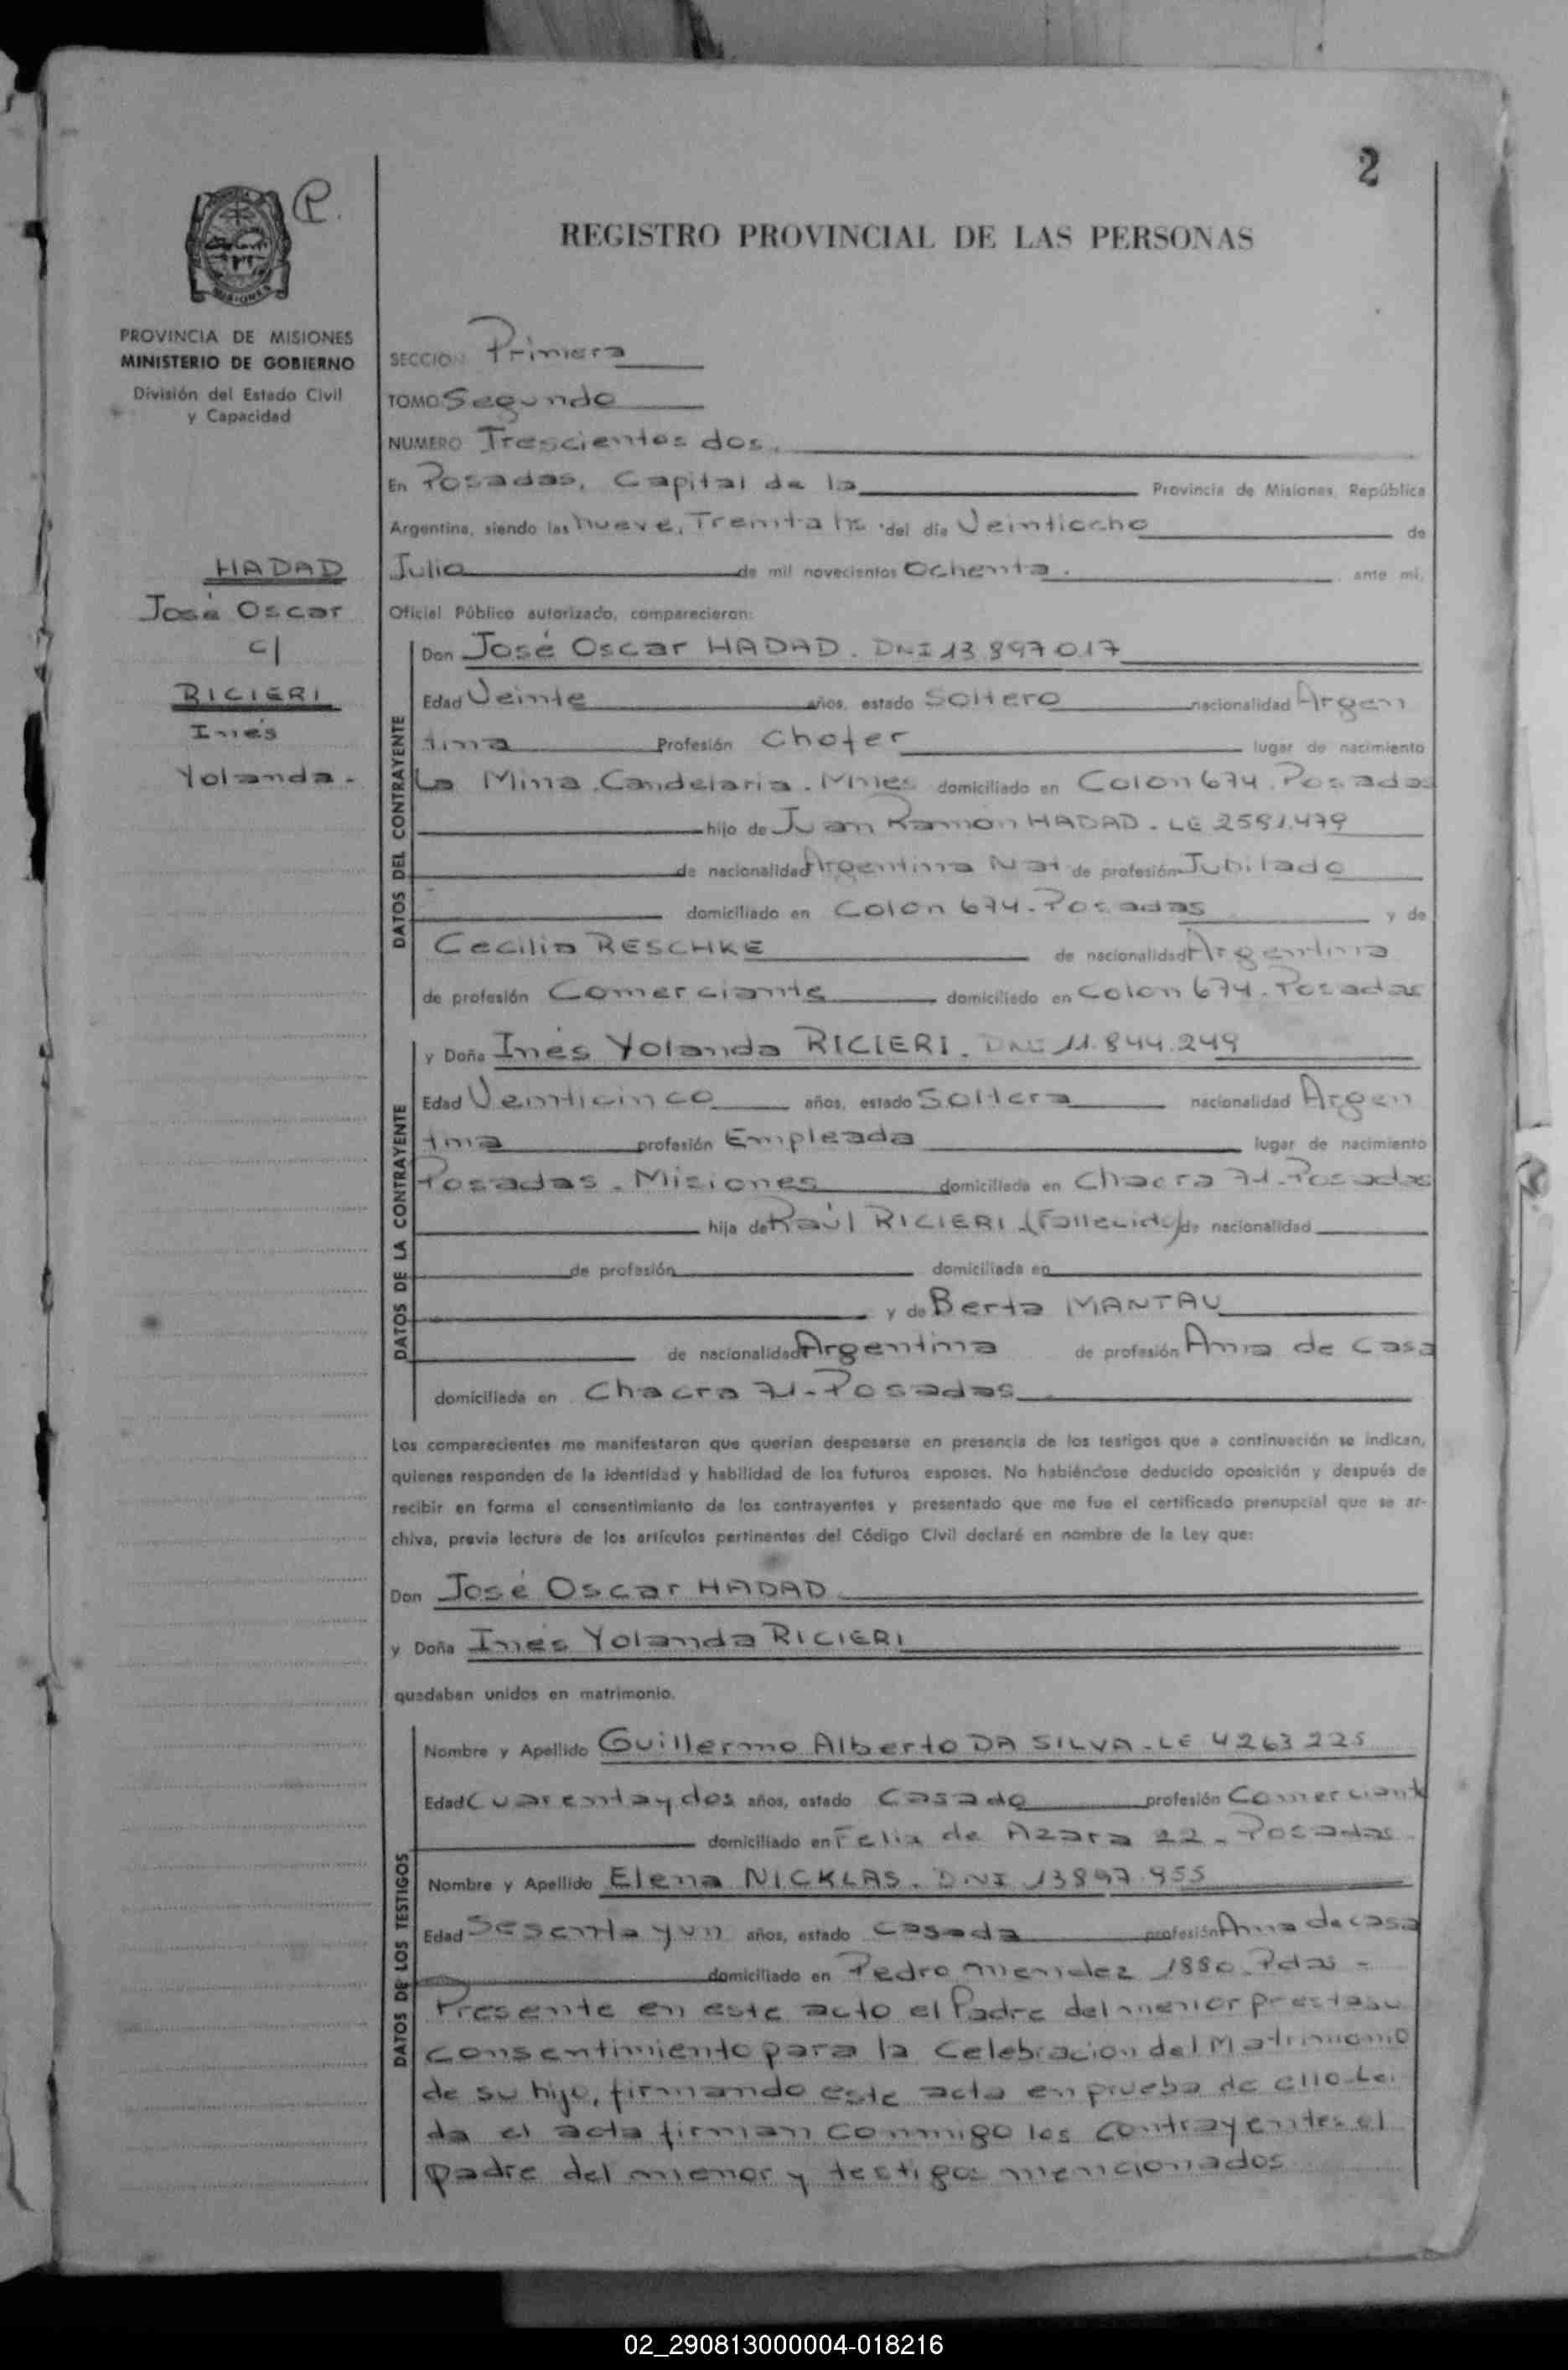 2
P.
REGISTRO PROVINCIAL DE LAS PERSONAS
MISIONES
PROVINCIA DE MISIONES
MINISTERIO DE GOBIERNO
División del Estado Civil
y Capacidad
HADAD
José Oscar
c/
RICIERI
Inés
Yolanda.-
SECCION Primera
TOMO Segundo
NUMERO Trescientos dos.
En Posadas, Capital de la Provincia de Misiones, República
Argentina, siendo las nueve, Treinta hs del día Veintiocho de
Julio de mil novecientos Ochenta. , ante mí,
Oficial Público autorizado, comparecieron:
DATOS DEL CONTRAYENTE
Don José Oscar HADAD. DNI 13.897.017
Edad Veinte años, estado Soltero nacionalidad Argen
tina Profesión Chofer lugar de nacimiento
La Mina. Candelaria. Mnes domiciliado en Colon 674. Posadas
hijo de Juan Ramon HADAD. LE 2581.479
de nacionalidad Argentina Nat de profesión Jubilado
domiciliado en Colon 674. Posadas y de
Cecilia RESCHKE de nacionalidad Argentina
de profesión Comerciante domiciliado en Colon 674. Posadas
DATOS DE LA CONTRAYENTE
y Doña Inés Yolanda RICIERI. DNI 11.844.249
Edad Veinticinco años, estado Soltera nacionalidad Argen
tina profesión Empleada lugar de nacimiento
Posadas. Misiones domiciliada en Chacra 71. Posadas
hija de Raúl RICIERI. (Fallecido) de nacionalidad
de profesión domiciliada en
y de Berta MANTAU
de nacionalidad Argentina de profesión Ama de Casa
domiciliada en Chacra 71. Posadas
Los comparecientes me manifestaron que querían desposarse en presencia de los testigos que a continuación se indican,
quienes responden de la identidad y habilidad de los futuros esposos. No habiéndose deducido oposición y después de
recibir en forma el consentimiento de los contrayentes y presentado que me fue el certificado prenupcial que se ar-
chiva, previa lectura de los artículos pertinentes del Código Civil declaré en nombre de la Ley que:
Don José Oscar HADAD
y Doña Inés Yolanda RICIERI
quedaban unidos en matrimonio.
DATOS DE LOS TESTIGOS
Nombre y Apellido Guillermo Alberto DA SILVA. LE 4263225
Edad Cuarenta y dos años, estado Casado profesión Comerciante
domiciliado en Felix de Azara 22. Posadas.
Nombre y Apellido Elena NICKLAS. DNI 13897.955
Edad Sesenta y un años, estado Casada profesión Ama de casa
domiciliado en Pedro Mendez 1880. Pdas -
Presente en este acto el Padre del menor presta su
consentimiento para la Celebracion del Matrimonio
de su hijo, firmando este acta en prueba de ello. Lei
da el acta firman conmigo los contrayentes el
padre del menor y testigos mencionados
02_290813000004-018216